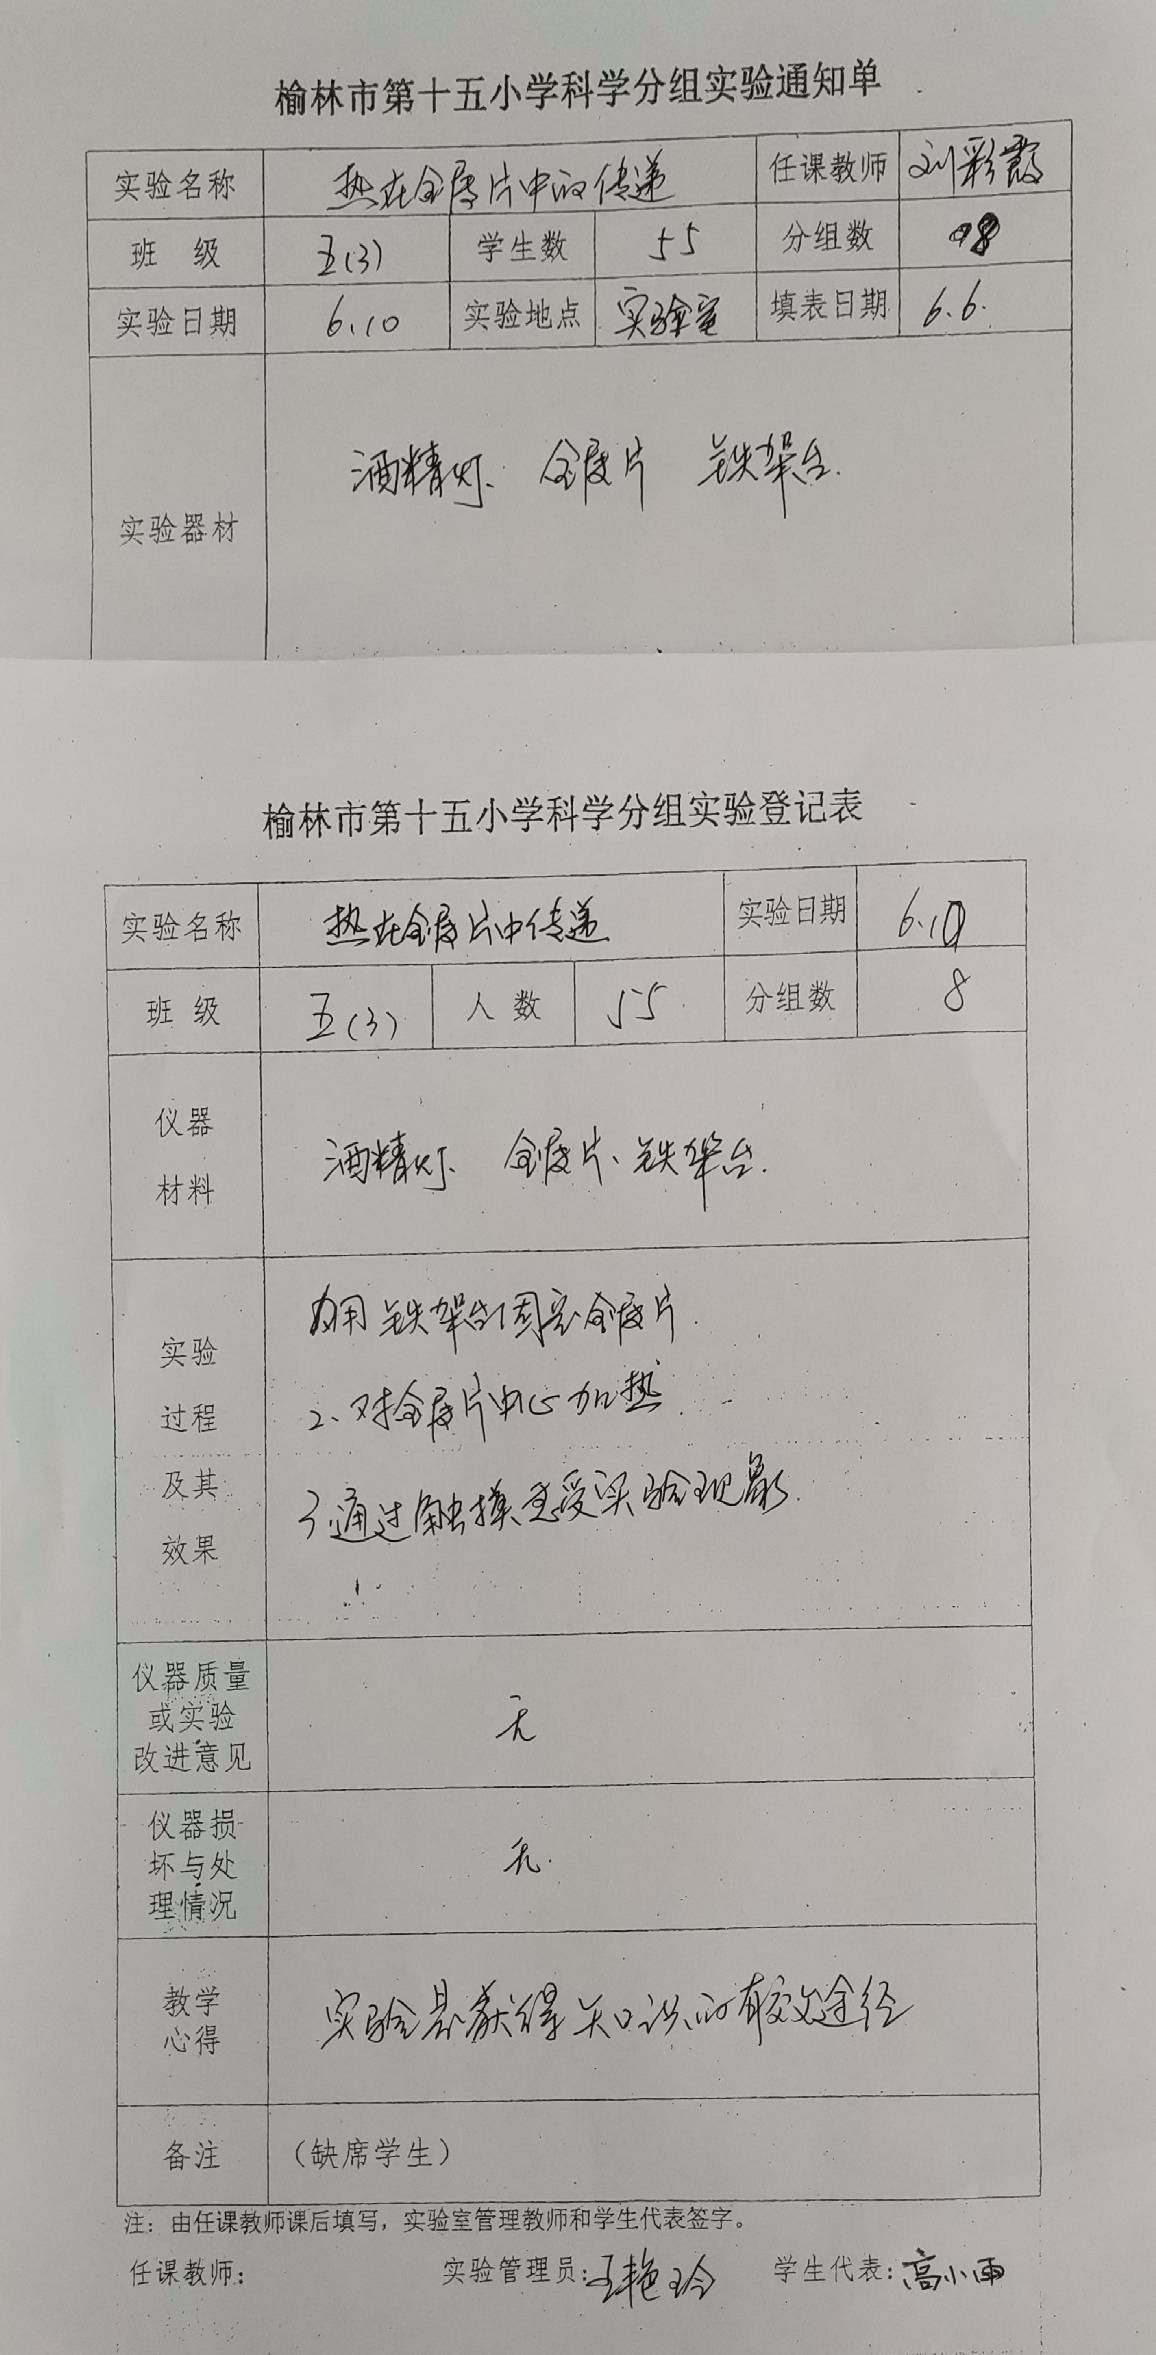 榆林市第十五小学科学分组实验通知单
实验名称 热在金属片中的传递 任课教师 刘彩霞
班 级 五(3) 学生数 55 分组数 8
实验日期 6.10 实验地点 实验室 填表日期 6.6.
酒精灯、金属片 铁架台.
实验器材
榆林市第十五小学科学分组实验登记表
实验名称 热在金属片中传递 实验日期 6.10
班 级 五(3) 人 数 55 分组数 8
仪器
材料
酒精灯、金属片、铁架台.
实验
过程
及其
效果
用铁架台固定金属片.
2、对金属片中心加热
3.通过触摸感受实验现象.
仪器质量
或实验
改进意见
无
仪器损
坏与处
理情况
无.
教学
心得
实验是获得知识的有效途径
备注 (缺席学生)
注：由任课教师课后填写，实验室管理教师和学生代表签字。
任课教师： 实验管理员：王艳玲 学生代表：高小雨